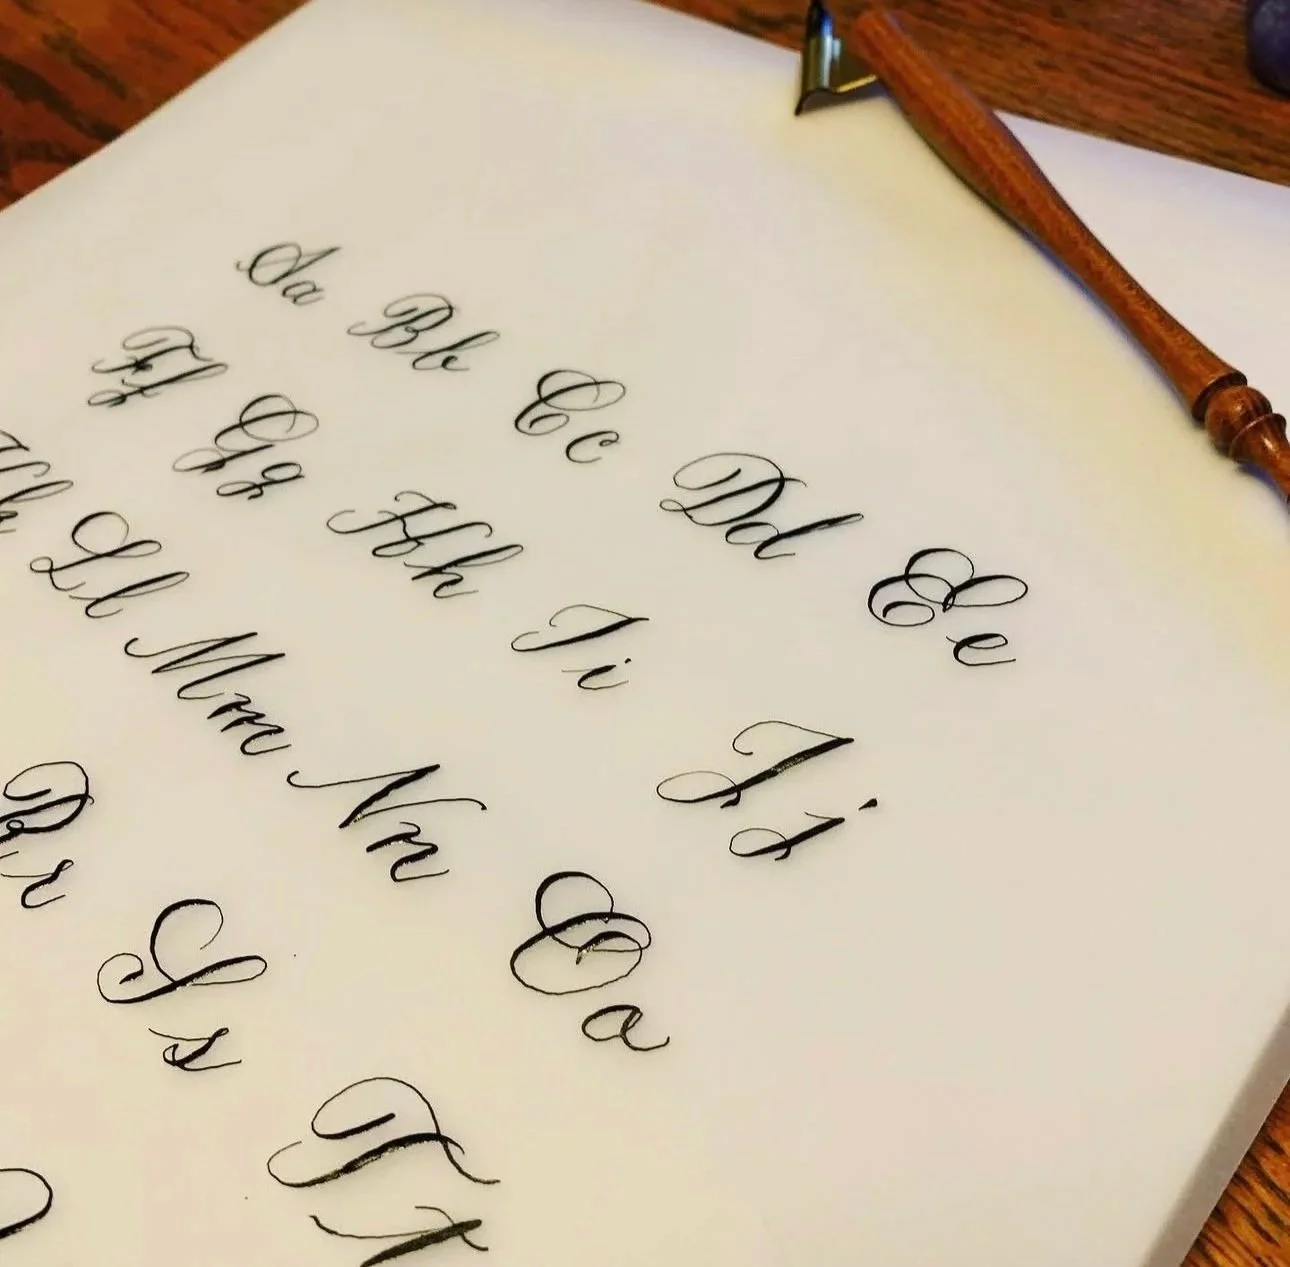 Aa Bb Cc Dd Ee
Ff Gg Hh Ii Jj
Kk Ll Mm Nn Oo
Rr Ss Tt